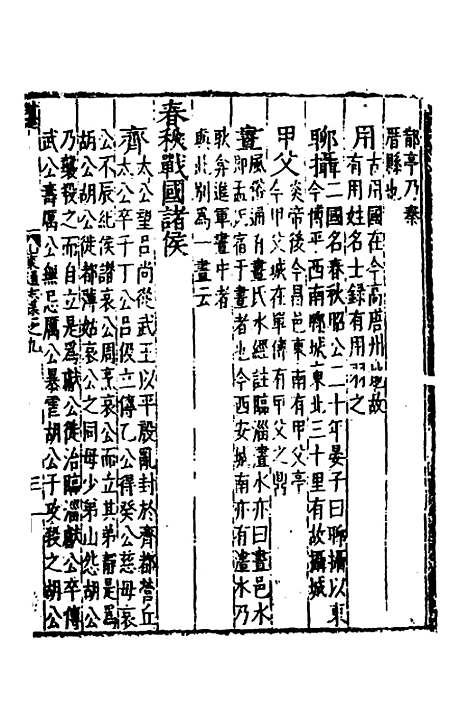 鄑亭乃秦
厝縣也
用古用國在今高唐州地故
有用姓名士録有用羽之
聊攝二國名春秋昭公二十年晏子曰聊攝以東
今傅平西南聊城東北三十里有故攝城
甲父炎帝後今昌邑東南有甲父亭
今甲父城在單傅有甲父之鼎
畫風俗通有畫氏水經註臨淄畫水亦曰畫邑水
即孟氏宿于畫者也今西安城南亦有澅水乃
耿弇進軍畫中者
與此別爲一畫云
春秋戰國諸侯
齊太公望吕尚從武王以平殷亂封於齊都營丘
太公卒子丁公吕伋立傳乙公得癸公慈母哀
公不辰紀侯譖哀公周烹哀公而立其弟靜是爲
胡公胡公徙都薄姑哀公之同母少弟山怨胡公
乃襲殺之而自立是爲獻公徙治臨淄獻公卒傳
武公壽厲公無忌厲公暴虐胡公子攻殺之胡公
山東通志卷之九
三